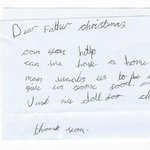 Dear Father christmas
can you help
can we have a home
man wants us to be
give us some food.
Just we doll for
thank you.